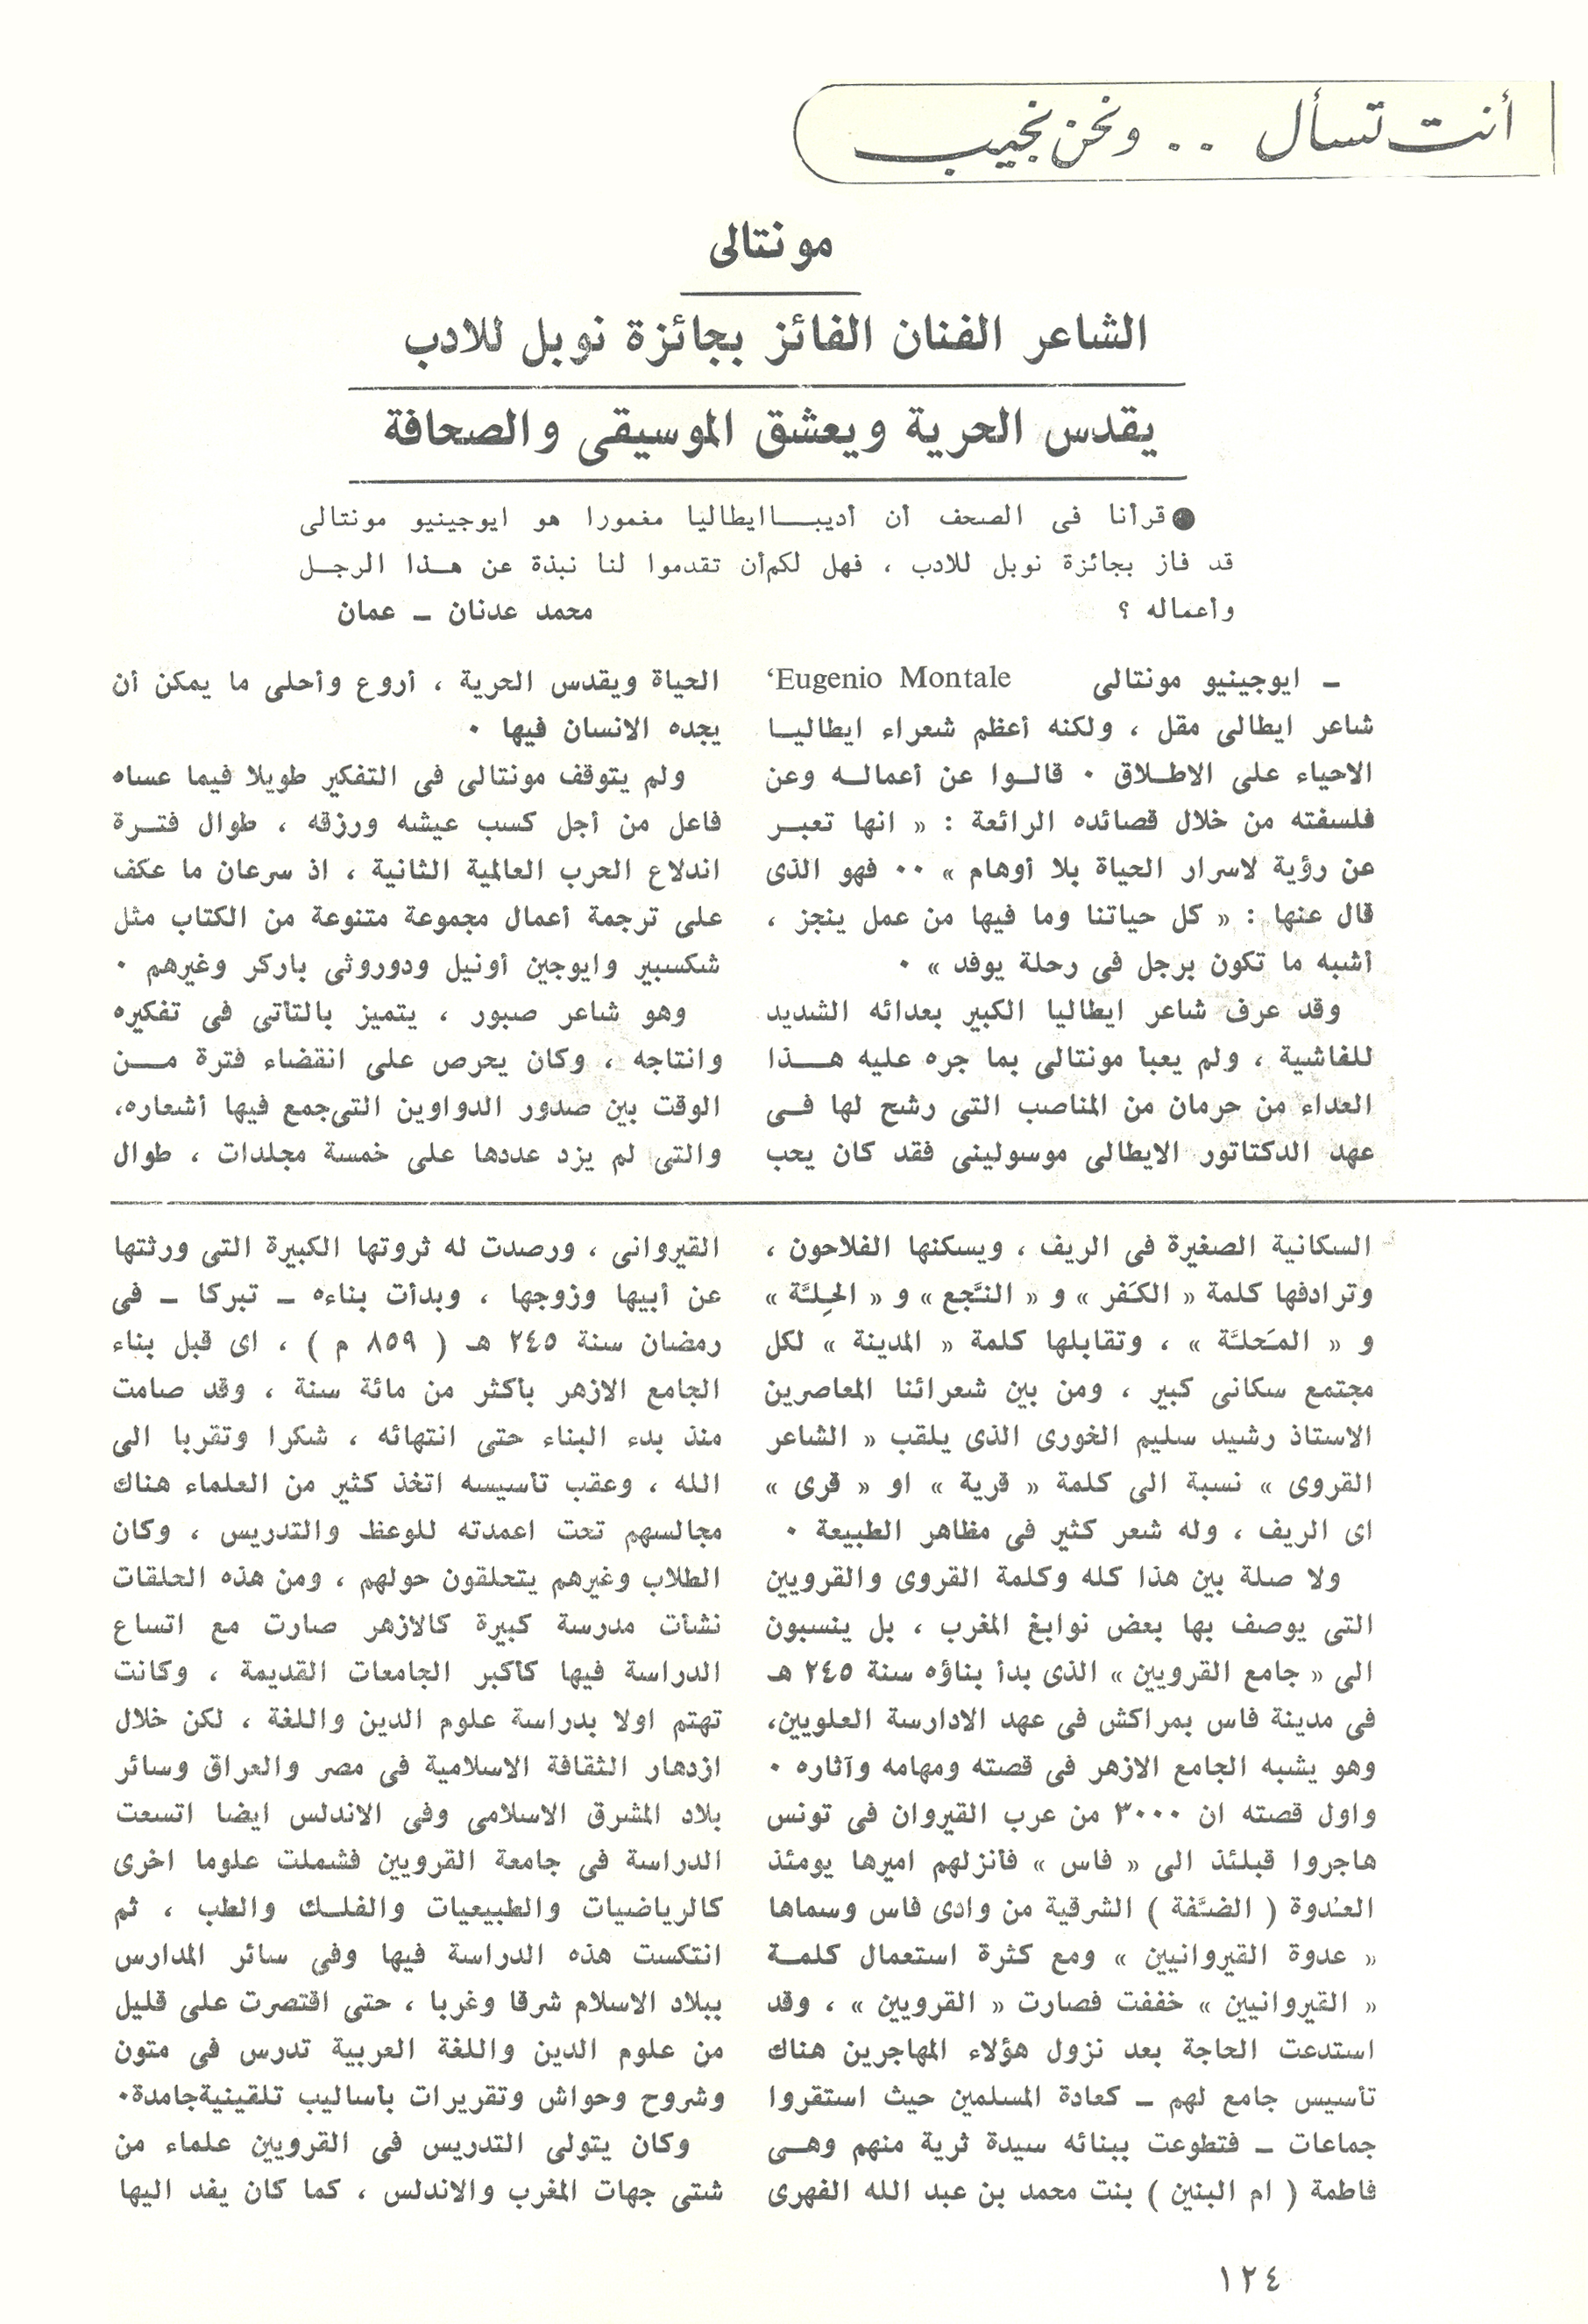 أنت تسأل .. ونحن نجيب
مونتالى
الشاعر الفنان الفائز بجائزة نوبل للادب
يقدس الحرية ويعشق الموسيقى والصحافة
● قرأنا فى الصحف أن أديبـــا ايطاليا مغمورا هو ايوجينيو مونتالى
قد فاز بجائزة نوبل للادب ، فهل لكم أن تقدموا لنا نبذة عن هـذا الرجـل
وأعماله ؟ محمد عدنان ــ عمان
ــ ايوجينيو مونتالى Eugenio Montale‘
شاعر ايطالى مقل ، ولكنه أعظم شعراء ايطاليـا
الاحياء على الاطـلاق ٠ قالـوا عن أعمالـه وعن
فلسفته من خلال قصائده الرائعة : « انها تعبـر
عن رؤية لاسرار الحياة بلا أوهام » ٠٠ فهو الذى
قال عنها : « كل حياتنا وما فيها من عمل ينجز ،
أشبه ما تكون برجل فى رحلة يوفد » ٠
وقد عرف شاعر ايطاليا الكبير بعدائه الشديد
للفاشية ، ولم يعبأ مونتالى بما جره عليه هـــذا
العداء من حرمان من المناصب التى رشح لها فـى
عهد الدكتاتور الايطالى موسولينى فقد كان يحب
الحياة ويقدس الحرية ، أروع وأحلى ما يمكن أن
يجده الانسان فيها ٠
ولم يتوقف مونتالى فى التفكير طويلا فيما عساه
فاعل من أجل كسب عيشه ورزقه ، طوال فتـرة
اندلاع الحرب العالمية الثانية ، اذ سرعان ما عكف
على ترجمة أعمال مجموعة متنوعة من الكتاب مثل
شكسبير وايوجين أونيل ودوروثى باركر وغيرهم ٠
وهو شاعر صبور ، يتميز بالتأتى فى تفكيره
وانتاجه ، وكان يحرص على انقضاء فترة مـــن
الوقت بين صدور الدواوين التى جمع فيها أشعاره،
والتى لم يزد عددها على خمسة مجلدات ، طوال
السكانية الصغيرة فى الريف ، ويسكنها الفلاحون ،
وترادفها كلمة « الكَفر » و « النَّجع » و « الحِلَّة »
و « المَحلَّة » ، وتقابلها كلمة « المدينة » لكل
مجتمع سكانى كبير ، ومن بين شعرائنا المعاصرين
الاستاذ رشيد سليم الخورى الذى يلقب « الشاعر
القروى » نسبة الى كلمة « قرية » او « قرى »
اى الريف ، وله شعر كثير فى مظاهر الطبيعة ٠
ولا صلة بين هذا كله وكلمة القروى والقرويين
التى يوصف بها بعض نوابغ المغرب ، بل ينسبون
الى « جامع القرويين » الذى بدأ بناؤه سنة ٢٤٥ هـ
فى مدينة فاس بمراكش فى عهد الادارسة العلويين،
وهو يشبه الجامع الازهر فى قصته ومهامه وآثاره ٠
واول قصته ان ٣٠٠٠ من عرب القيروان فى تونس
هاجروا قبلئذ الى « فاس » فأنزلهم اميرها يومئذ
العدوة ( الضَّفة ) الشرقية من وادى فاس وسماها
« عدوة القيروانيين » ومع كثرة استعمال كلمـة
« القيروانيين » خففت فصارت « القرويين » ، وقد
استدعت الحاجة بعد نزول هؤلاء المهاجرين هناك
تأسيس جامع لهم ــ كعادة المسلمين حيث استقروا
جماعات ــ فتطوعت ببنائه سيدة ثرية منهم وهـى
فاطمة ( ام البنين ) بنت محمد بن عبد الله الفهرى
القيروانى ، ورصدت له ثروتها الكبيرة التى ورثتها
عن أبيها وزوجها ، وبدأت بناءه ــ تبركا ــ فى
رمضان سنة ٢٤٥ هـ ( ٨٥٩ م ) ، اى قبل بناء
الجامع الازهر بأكثر من مائة سنة ، وقد صامت
منذ بدء البناء حتى انتهائه ، شكرا وتقربا الى
الله ، وعقب تأسيسه اتخذ كثير من العلماء هناك
مجالسهم تحت اعمدته للوعظ والتدريس ، وكان
الطلاب وغيرهم يتحلقون حولهم ، ومن هذه الحلقات
نشأت مدرسة كبيرة كالازهر صارت مع اتساع
الدراسة فيها كأكبر الجامعات القديمة ، وكانت
تهتم اولا بدراسة علوم الدين واللغة ، لكن خلال
ازدهار الثقافة الاسلامية فى مصر والعراق وسائر
بلاد المشرق الاسلامى وفى الاندلس ايضا اتسعت
الدراسة فى جامعة القرويين فشملت علوما اخرى
كالرياضيات والطبيعيات والفلـك والطب ، ثم
انتكست هذه الدراسة فيها وفى سائر المدارس
ببلاد الاسلام شرقا وغربا ، حتى اقتصرت على قليل
من علوم الدين واللغة العربية تدرس فى متون
وشروح وحواش وتقريرات بأساليب تلقينية جامدة٠
وكان يتولى التدريس فى القرويين علماء من
شتى جهات المغرب والاندلس ، كما كان يفد اليها
١٢٤